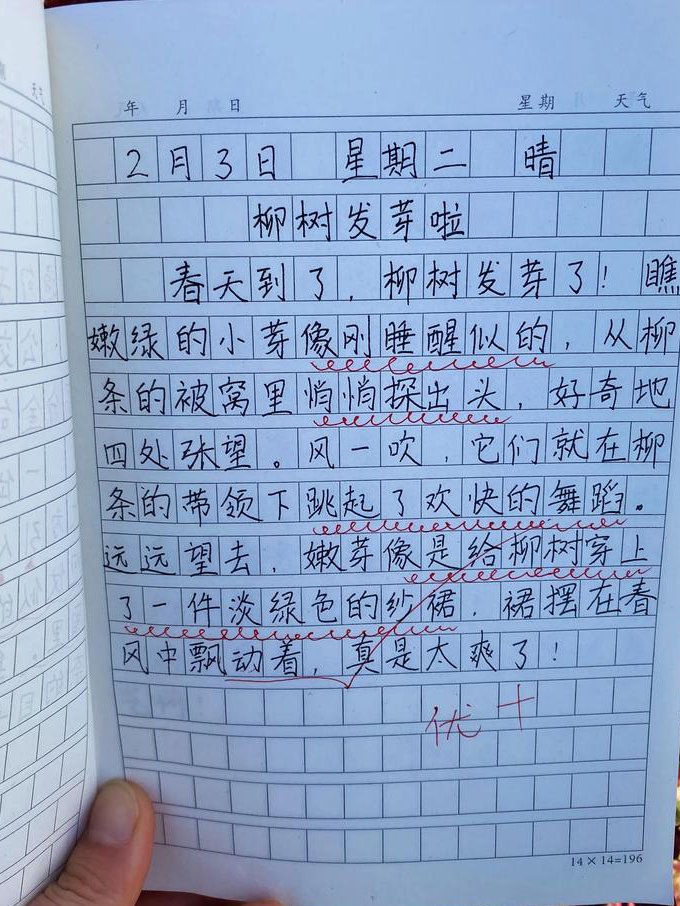 年 月 日 星期 天气
2月3日 星期二 晴
柳树发芽啦
春天到了，柳树发芽了！瞧
嫩绿的小芽像刚睡醒似的，从柳
条的被窝里悄悄探出头，好奇地
四处张望。风一吹，它们就在柳
条的带领下跳起了欢快的舞蹈。
远远望去，嫩芽像是给柳树穿上
了一件淡绿色的纱裙，裙摆在春
风中飘动着，真是太爽了！
优+
14×14=196